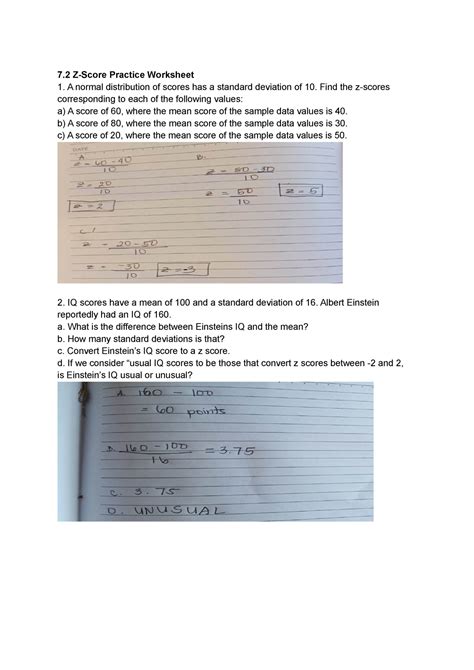 7.2 Z-Score Practice Worksheet
1. A normal distribution of scores has a standard deviation of 10. Find the z-scores
corresponding to each of the following values:
a) A score of 60, where the mean score of the sample data values is 40.
b) A score of 80, where the mean score of the sample data values is 30.
c) A score of 20, where the mean score of the sample data values is 50.
DATE
A.
z = 60 - 40
10
z = 20
10
z = 2
B.
z = 80 - 30
10
z = 50
10
z = 5
C.
z = 20 - 50
10
z = -30
10
z = -3
2. IQ scores have a mean of 100 and a standard deviation of 16. Albert Einstein
reportedly had an IQ of 160.
a. What is the difference between Einsteins IQ and the mean?
b. How many standard deviations is that?
c. Convert Einstein's IQ score to a z score.
d. If we consider “usual IQ scores to be those that convert z scores between -2 and 2,
is Einstein's IQ usual or unusual?
A. 160 - 100
= 60 points
B. 160 - 100 = 3.75
16
C. 3.75
D. UNUSUAL